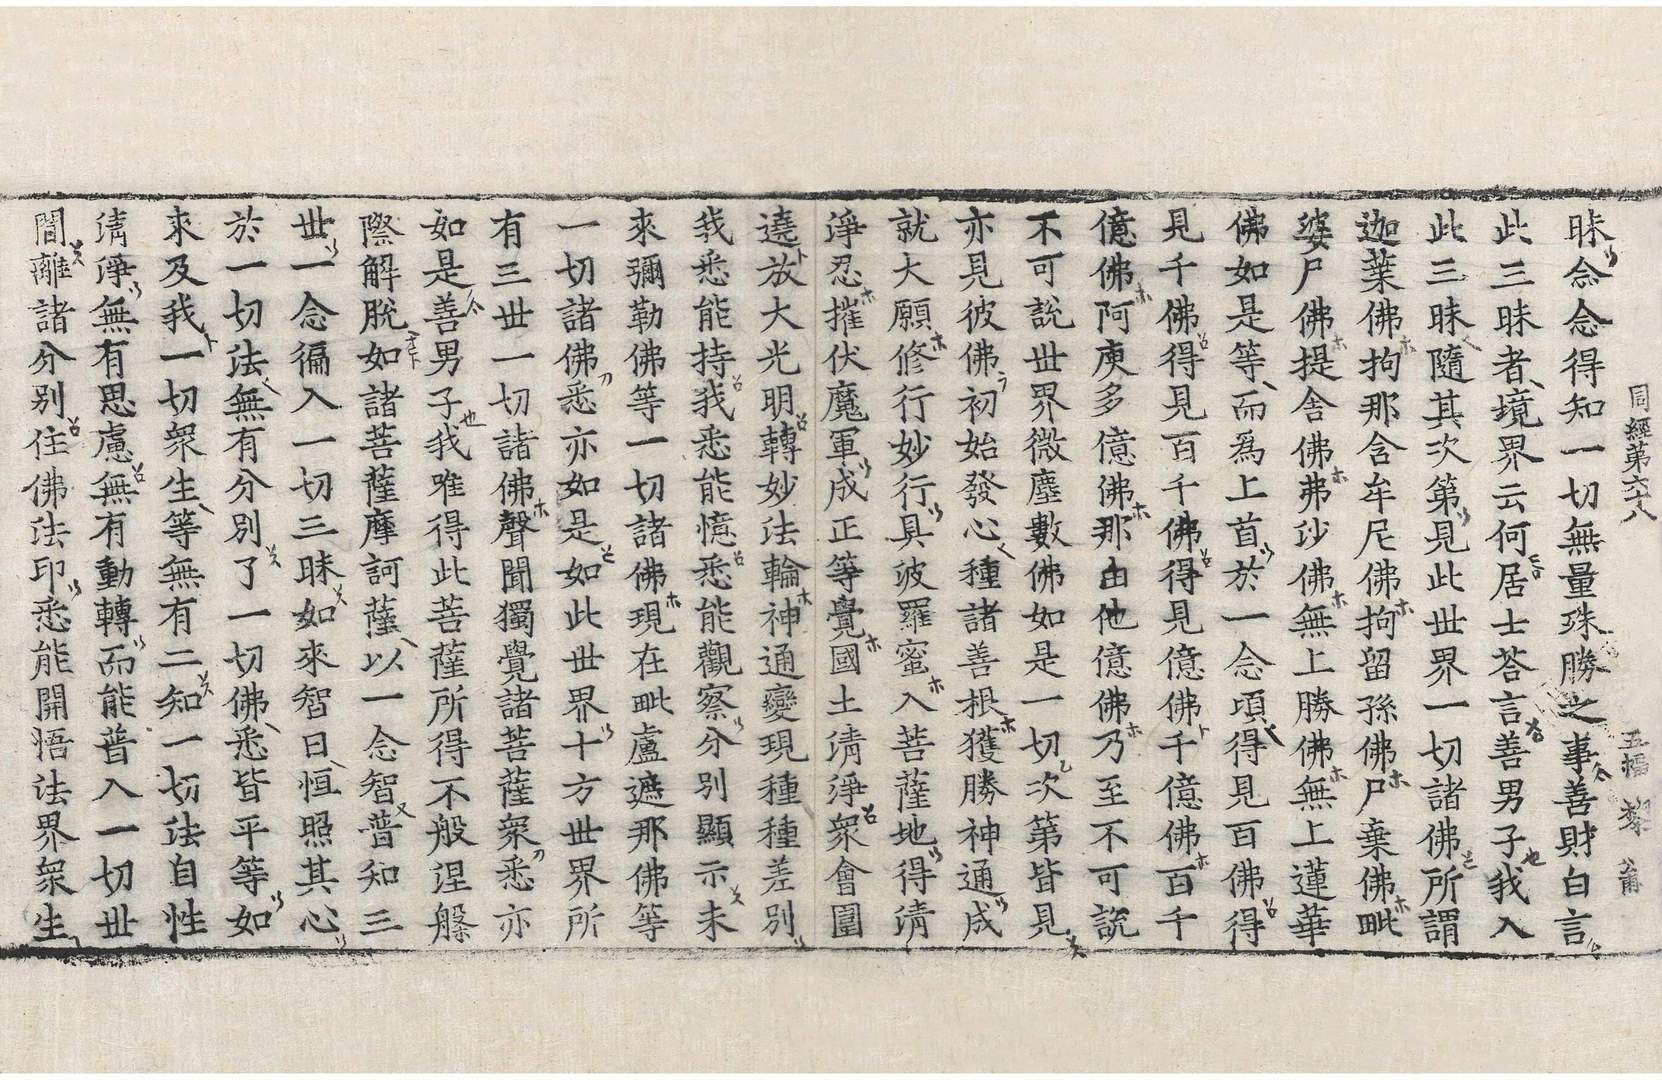 同經第六十八 五楅
昧念念得知一切無量殊勝之事善財白言
此三昧者境界云何居士荅言善男子我入
此三昧隨其次第見此世界一切諸佛所謂
迦葉佛拘那含牟尼佛拘留孫佛尸棄佛毗
婆尸佛提舍佛弗沙佛無上勝佛無上蓮華
佛如是等而爲上首於一念頃得見百佛得
見千佛得見百千佛得見億佛千億佛百千
億佛阿庾多億佛那由他億佛乃至不可說
不可說世界微塵數佛如是一切次第皆見
亦見彼佛初始發心種諸善根獲勝神通成
就大願修行妙行具波羅蜜入菩薩地得淸
淨忍摧伏魔軍成正等覺國土淸淨衆會圍
遶放大光明轉妙法輪神通變現種種差別
我悉能持我悉能憶悉能觀察分別顯示未
來彌勒佛等一切諸佛現在毗盧遮那佛等
一切諸佛悉亦如是如此世界十方世界所
有三世一切諸佛聲聞獨覺諸菩薩衆悉亦
如是善男子我唯得此菩薩所得不般涅槃
際解脫如諸菩薩摩訶薩以一念智普知三
世一念徧入一切三昧如來智日恒照其心
於一切法無有分別了一切佛悉皆平等如
來及我一切衆生等無有二知一切法自性
淸淨無有思慮無有動轉而能普入一切世
間離諸分別住佛法印悉能開悟法界衆生